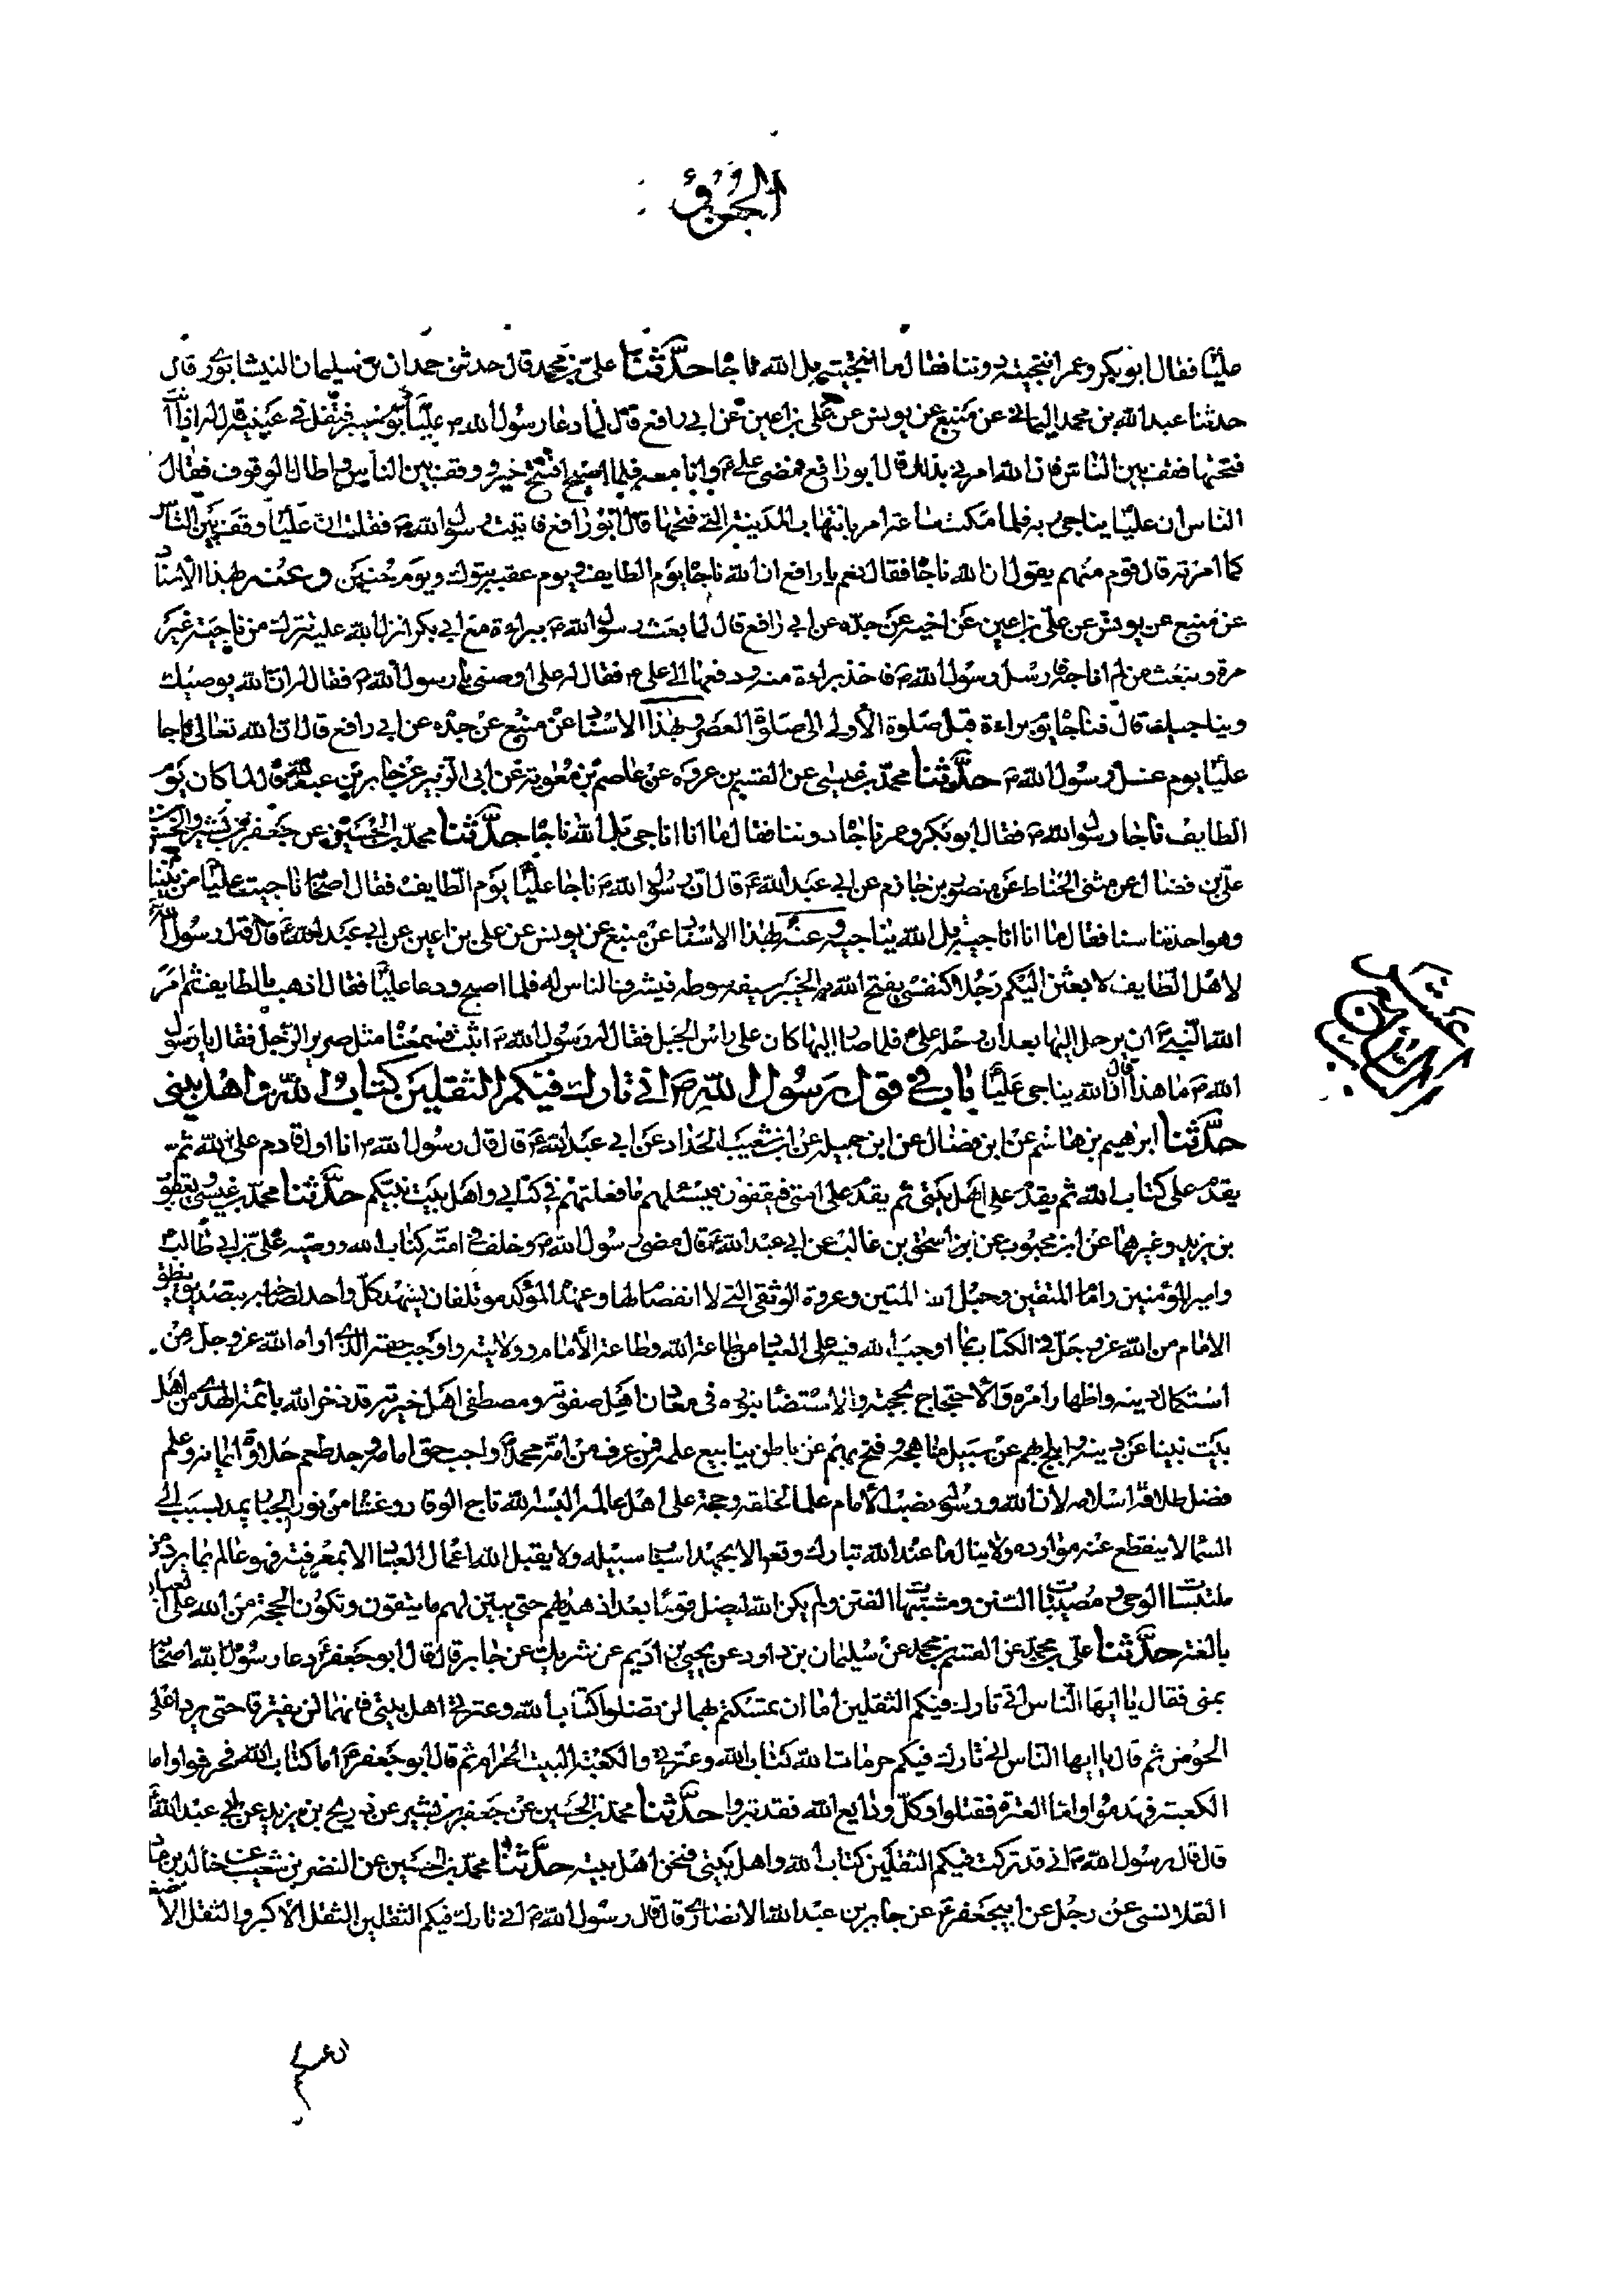 الجزؤ
عليّا فقال ابو بكر وعمر انتجيته دوننا فقال ما انتجيته بل الله ناجا حدّثنا علىّ بن محمد قال حدثنى حمدان بن سليمان النيشابوري قال
حدثنا عبد الله بن محمد اليمانى عن منيع عن يونس عن على بن اعين عن ابى رافع قال لما دعا رسول الله ص عليّا يوم خيبر فتفل فى عينيه قال له اذا انت
فتحتها فقف بين الناس فان الله امرنى بذلك قال ابو رافع فمضى على ع وانا معه فلما اصبح افتتح خيبر ووقف بين الناس واطال الوقوف فقال
الناس ان عليّا يناجى ربه فلما مكث ساعة امر بانتهاب المدينة التى فتحها قال ابو رافع فاتيت رسول الله ص فقلت ان عليّا وقف بين الناس
كما امرته قال قوم منهم يقول ان الله ناجا فقال نعم يا رافع ان الله ناجا يوم الطايف ويوم عقبة تبوك ويوم حنين وعنه بهذا الاسناد
عن منيع عن يونس عن علىّ بن اعين عن اخيه عن جدّه عن ابى رافع قال لما بعث رسول الله ص ببراءة مع ابى بكر انزل الله عليه تترك من ناجيته غير
مرة وتبعث من لم اناجه فارسل رسول الله ص فاخذ براءة منه ودفعها الى على ع فقال له على اوصنى يا رسول الله ص فقال له ان الله يوصيك
ويناجيك قال فناجا يوم براءة قبل صلوة الأولى الى صلاة العصر وبهذا الاسناد عن منيع عن جدّه عن ابى رافع قال ان الله تعالى ناجا
عليّا يوم غسل رسول الله ص حدّثنا محمد بن عيسى عن القسم بن عروة عن عاصم بن معوية عن ابى الزبير عن جابر بن عبد الله قال لما كان يوم
الطايف ناجا رسول الله ص فقال ابو بكر وعمر ناجا دوننا فقال ما انا اناجى بل الله ناجا حدّثنا محمد بن الحسين عن جعفر بن بشير والحسن
علىّ بن فضال عن مثنى الحناط عن منصور بن حازم عن ابى عبد الله ع قال ان رسول الله ص ناجا عليّا يوم الطايف فقال اصحابه ناجيت عليّا من بيننا
وهو احدثنا سنا فقال ما انا اناجيه بل الله يناجيه وعنه بهذا الاسناد عن منيع عن يونس عن على بن اعين عن ابى عبد الله ع قال قال رسول الله ص
لاهل الطايف لابعثن اليكم رجلا كنفسى يفتح الله به الخيبر سيفه سوطه فيشرف الناس له فلما اصبح ودعا عليّا فقال اذهب بالطايف ثم امر
الله النبى ص ان يرحل اليها بعد ان رحل على ع فلما صار اليها كان على راس الجبل فقال له رسول الله ص اثبت فسمعنا مثل صرير الرجل فقال يا رسول
الله ص ما هذا قال ان الله يناجى عليّا باب فى قول رسول الله ص انى تارك فيكم الثقلين كتاب الله واهل بيتى
حدّثنا ابرهيم بن هاشم عن ابن فضال عن ابن جميلة عن ابن شعيب الحداد عن ابى عبد الله ع قال قال رسول الله ص انا اول قادم على الله ثم
يقدم على كتاب الله ثم يقدم على اهل بيتى ثم يقدم على امتى فيقفون فيسئلهم ما فعلتم فى كتابى واهل بيت نبيكم حدّثنا محمد بن عيسى ويعقوب
بن يزيد وغيرهما عن ابن محبوب عن ابن اسحق بن غالب عن ابى عبد الله ع قال مضى رسول الله ص وخلف فى امته كتاب الله ووصيه على بن ابى طالب
وامير المؤمنين وامام المتقين وحبل الله المتين وعروة الوثقى التى لا انفصام لها وعهد المؤكد مؤتلفان يشهد كلّ واحد لصاحبه بتصديق ينطق
الامام من الله عز وجل فى الكتاب بما اوجب الله فيه على العباد من طاعة الله وطاعة الأمام وولايته واوجب حقه الذى اراه الله عز وجل من
استكمال دينه واظهار امره والأحتجاج بحجته والاستضاء بنوره فى معادن اهل صفوته ومصطفى اهل خيرته قد ذخر الله بائمة الهدى من اهل
بيت نبينا عن دينه وابلج بهم عن سبيل مناهجه وفتح بهم عن باطن ينابيع علمه فمن عرف من امّة محمد ص واجب حق امامه وجد طعم حلاوة ايمانه وعلم
فضل طلاقة اسلامه لان الله ورسوله نصب الأمام علما لخلقه وحجة على اهل عالمه البسه الله تاج الوقار وغشاه من نور الجبار يمد بسبب الى
السماء لا ينقطع عنه مواده ولا ينال ما عند الله تبارك وتعالى الا بجهد اسباب سبيله ولا يقبل الله اعمال العباد الا بمعرفته فهو عالم بما يرد من
ملتبسات الوحى ومصيبات السنن ومشتبهات الفتن ولم يكن الله ليضل قوما بعد اذ هديهم حتى يبين لهم ما يتقون وتكون الحجة من الله على العباد
بالغة حدّثنا علىّ بن محمد عن القسم بن محمد عن سليمان بن داود عن يحيى بن اديم عن شريك عن جابر قال قال ابو جعفر ع دعا رسول الله اصحابه
بمنى فقال يا ايها الناس انى تارك فيكم الثقلين اما ان تمسكتم بهما لن تضلوا كتاب الله وعترتى اهل بيتى فانهما لن يفترقا حتى يردا على
الحوض ثم قال يا ايها الناس انى تارك فيكم حرمات الله كتاب الله وعترتى والكعبة البيت الحرام ثم قال ابو جعفر ع اما كتاب الله فحرفوا واما
الكعبة فهدموا واما العترة فقتلوا وكلّ ودايع الله فقد تبروا حدّثنا محمد بن الحسين عن جعفر بن بشير عن ذريح بن يزيد عن ابى عبد الله ع
قال قال رسول الله ص انى قد تركت فيكم الثقلين كتاب الله واهل بيتى فنحن اهل بيته حدّثنا محمد بن الحسين عن النضر بن شعيب عن خالد بن ماد
القلانسى عن رجل عن ابى جعفر ع عن جابر بن عبد الله الانصارى قال قال رسول الله ص انى تارك فيكم الثقلين الثقل الأكبر والثقل الأصغر